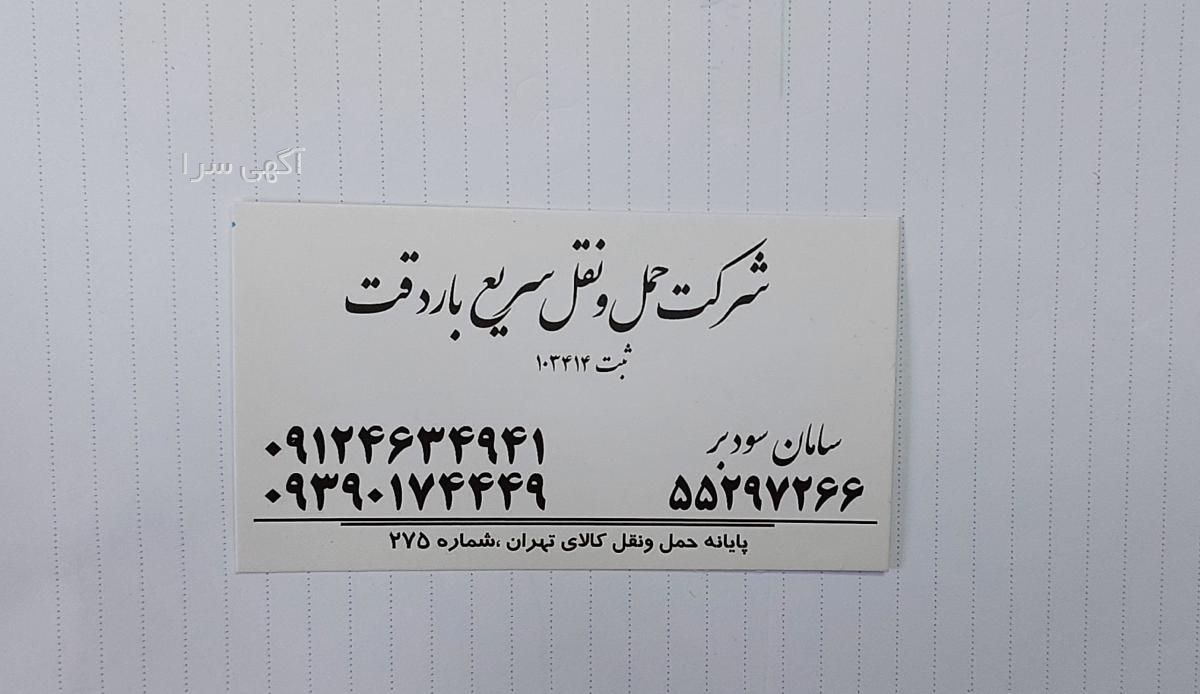 آگهی سرا
شرکت حمل و نقل سریع بار دقت
ثبت ۱۰۳۴۱۴
سامان سودبر
۵۵۲۹۷۲۶۶
۰۹۱۲۴۶۳۴۹۴۱
۰۹۳۹۰۱۷۴۴۴۹
پایانه حمل ونقل کالای تهران ،شماره ۲۷۵